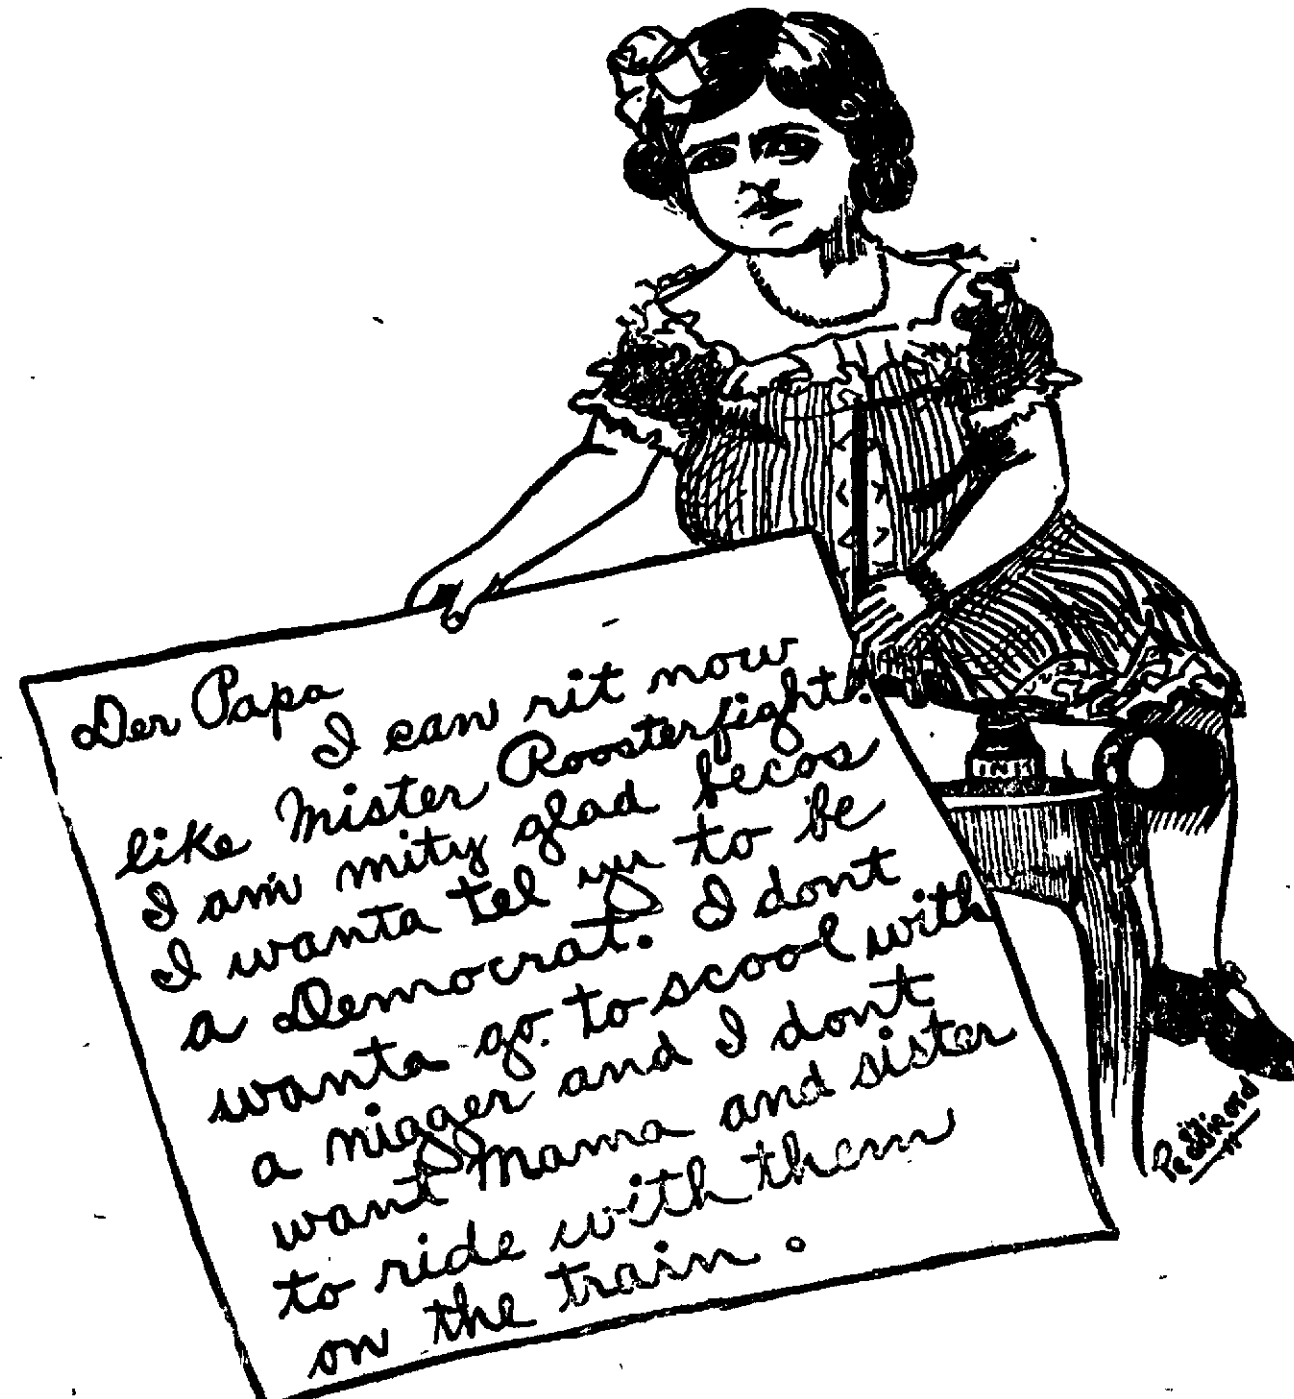 Der Papa
I can rit now
like Mister Roosterfight.
I am mity glad becos
I wanta tel yu to be
a Democrat. I dont
wanta go. to scool with
a nigger and I dont
want Mama and sister
to ride with them
on the train.
INK